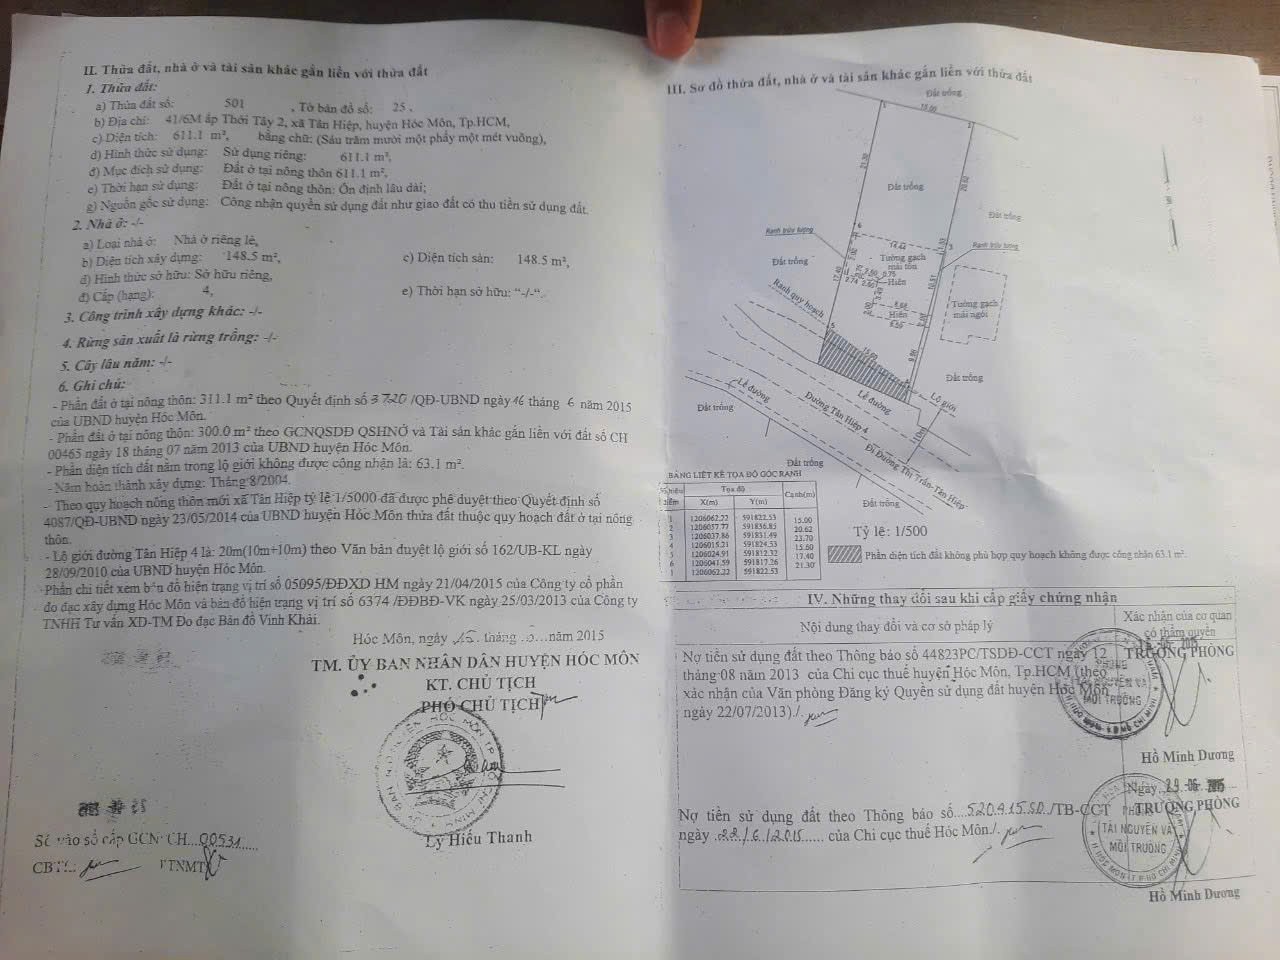 II. Thửa đất, nhà ở và tài sản khác gắn liền với thửa đất
1. Thửa đất:
a) Thửa đất số: 501 , Tờ bản đồ số: 25 ,
b) Địa chỉ: 41/6M ấp Thới Tây 2, xã Tân Hiệp, huyện Hóc Môn, Tp.HCM,
c) Diện tích: 611.1 m², bằng chữ: (Sáu trăm mười một phẩy một mét vuông),
d) Hình thức sử dụng: Sử dụng riêng: 611.1 m²,
đ) Mục đích sử dụng: Đất ở tại nông thôn 611.1 m²,
e) Thời hạn sử dụng: Đất ở tại nông thôn: Ổn định lâu dài;
g) Nguồn gốc sử dụng: Công nhận quyền sử dụng đất như giao đất có thu tiền sử dụng đất.
2. Nhà ở: -/-
a) Loại nhà ở: Nhà ở riêng lẻ,
b) Diện tích xây dựng: 148.5 m², c) Diện tích sàn: 148.5 m²,
d) Hình thức sở hữu: Sở hữu riêng,
đ) Cấp (hạng): 4, e) Thời hạn sở hữu: "-/-".
3. Công trình xây dựng khác: -/-
4. Rừng sản xuất là rừng trồng: -/-
5. Cây lâu năm: -/-
6. Ghi chú:
- Phần đất ở tại nông thôn: 311.1 m² theo Quyết định số 3720 /QĐ-UBND ngày 16 tháng 6 năm 2015
của UBND huyện Hóc Môn.
- Phần đất ở tại nông thôn: 300.0 m² theo GCNQSDĐ QSHNỞ và Tài sản khác gắn liền với đất số CH
00465 ngày 18 tháng 07 năm 2013 của UBND huyện Hóc Môn.
- Phần diện tích đất nằm trong lộ giới không được công nhận là: 63.1 m².
- Năm hoàn thành xây dựng: Tháng 8/2004.
- Theo quy hoạch nông thôn mới xã Tân Hiệp tỷ lệ 1/5000 đã được phê duyệt theo Quyết định số
4087/QĐ-UBND ngày 23/05/2014 của UBND huyện Hóc Môn thửa đất thuộc quy hoạch đất ở tại nông
thôn.
- Lộ giới đường Tân Hiệp 4 là: 20m(10m+10m) theo Văn bản duyệt lộ giới số 162/UB-KL ngày
28/09/2010 của UBND huyện Hóc Môn.
- Phần chi tiết xem bản đồ hiện trạng vị trí số 05095/ĐĐXD HM ngày 21/04/2015 của Công ty cổ phần
đo đạc xây dựng Hóc Môn và bản đồ hiện trạng vị trí số 6374 /ĐĐBĐ-VK ngày 25/03/2013 của Công ty
TNHH Tư vấn XD-TM Đo đạc Bản đồ Vinh Khải.
Hóc Môn, ngày tháng năm 2015
TM. ỦY BAN NHÂN DÂN HUYỆN HÓC MÔN
KT. CHỦ TỊCH
PHÓ CHỦ TỊCH
Lý Hiếu Thanh
Số vào sổ cấp GCN: CH 00531
III. Sơ đồ thửa đất, nhà ở và tài sản khác gắn liền với thửa đất
Đất trống
15.00
1
2
21.30
20.62
Đất trống
Đất trống
Ranh trùy tượng
6
14.44
3
Ranh trùy tượng
Đất trống
Tường gạch
mái tôn
17.40
Hiên
Ranh quy hoạch
Tường gạch
mái ngói
Hiên
5
15.60
Đất trống
Lộ giới
Lề đường
Lề đường
Đường Tân Hiệp 4
Đi Đường Thị Trấn-Tân Hiệp
Đất trống
Đất trống
Đất trống
BẢNG LIỆT KÊ TỌA ĐỘ GÓC RANH
Số hiệu điểm Tọa độ Cạnh(m)
X(m) Y(m)
1 1206062.22 591822.53
15.00
2 1206057.77 591836.85
20.62
3 1206037.86 591831.49
23.70
4 1206015.21 591824.53
15.60
5 1206024.91 591812.32
17.40
6 1206041.59 591817.26
21.30
1 1206062.22 591822.53
Tỷ lệ: 1/500
Phần diện tích đất không phù hợp quy hoạch không được công nhận 63.1 m².
IV. Những thay đổi sau khi cấp giấy chứng nhận
Nội dung thay đổi và cơ sở pháp lý
Xác nhận của cơ quan
có thẩm quyền
Nợ tiền sử dụng đất theo Thông báo số 44823PC/TSDĐ-CCT ngày 12
tháng 08 năm 2013 của Chi cục thuế huyện Hóc Môn, Tp.HCM (theo
xác nhận của Văn phòng Đăng ký Quyền sử dụng đất huyện Hóc Môn
ngày 22/07/2013)./.
TRƯỞNG PHÒNG
PHÒNG
TÀI NGUYÊN VÀ
MÔI TRƯỜNG
Hồ Minh Dương
Nợ tiền sử dụng đất theo Thông báo số 5209415.SD /TB-CCT
ngày 22/6/2015 của Chi cục thuế Hóc Môn./.
Ngày 29-06-2015
TRƯỞNG PHÒNG
PHÒNG
TÀI NGUYÊN VÀ
MÔI TRƯỜNG
Hồ Minh Dương